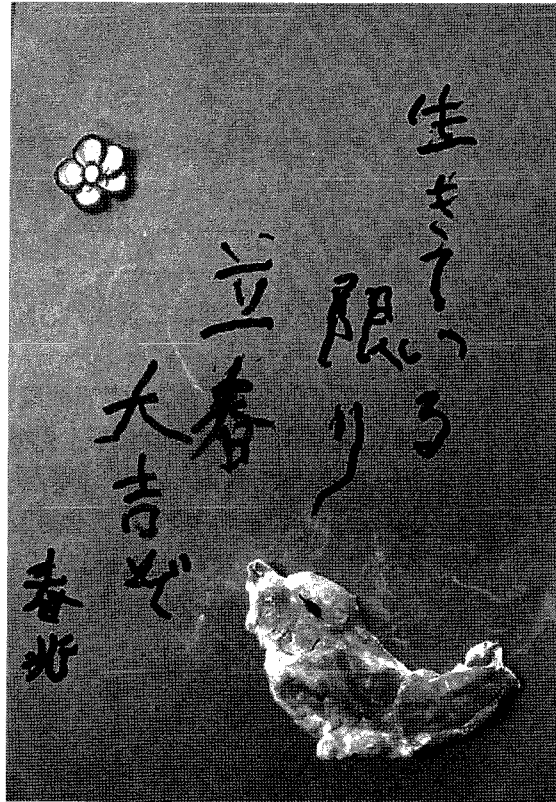 生きている
限り
立春
大吉ぞ
春